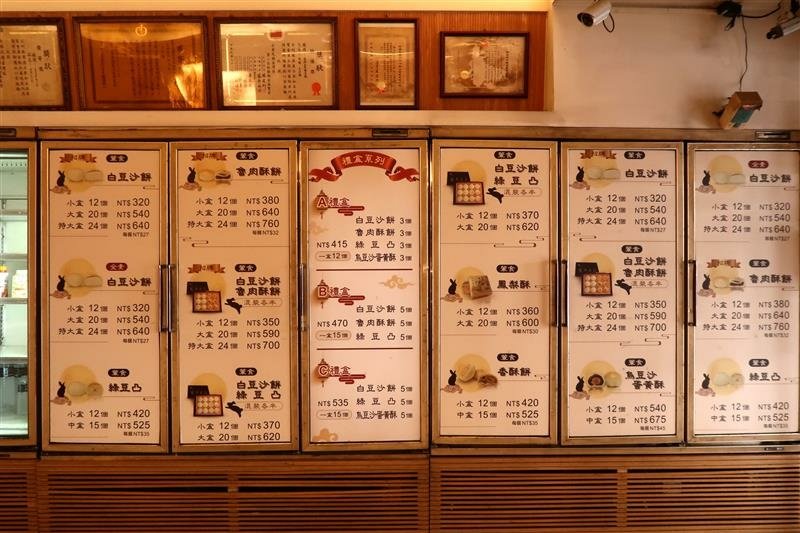 葷食
白豆沙餅
小盒 12個 NT$ 320
大盒 20個 NT$ 540
特大盒 24個 NT$ 640
每個NT$27
全素
白豆沙餅
小盒 12個 NT$ 320
大盒 20個 NT$ 540
特大盒 24個 NT$ 640
每個NT$27
葷食
綠豆凸
小盒 12個 NT$ 420
中盒 15個 NT$ 525
每個NT$35
葷食
魯肉酥餅
小盒 12個 NT$ 380
大盒 20個 NT$ 640
特大盒 24個 NT$ 760
每個NT$32
葷食
白豆沙餅
魯肉酥餅
混裝各半
小盒 12個 NT$ 350
大盒 20個 NT$ 590
特大盒 24個 NT$ 700
葷食
白豆沙餅
綠豆凸
混裝各半
小盒 12個 NT$ 370
大盒 20個 NT$ 620
禮盒系列
A禮盒
白豆沙餅 3個
魯肉酥餅 3個
NT$ 415 綠豆凸 3個
一盒12個 烏豆沙蛋黃酥 3個
B禮盒
白豆沙餅 5個
NT$ 470 魯肉酥餅 5個
一盒15個 綠豆凸 5個
C禮盒
白豆沙餅 5個
NT$ 535 綠豆凸 5個
一盒15個 烏豆沙蛋黃酥 5個
葷食
白豆沙餅
綠豆凸
混裝各半
小盒 12個 NT$ 370
大盒 20個 NT$ 620
葷食
鳳梨酥
小盒 12個 NT$ 360
大盒 20個 NT$ 600
每個NT$30
葷食
香酥餅
小盒 12個 NT$ 420
中盒 15個 NT$ 525
每個NT$35
葷食
白豆沙餅
小盒 12個 NT$ 320
大盒 20個 NT$ 540
特大盒 24個 NT$ 640
每個NT$27
葷食
白豆沙餅
魯肉酥餅
混裝各半
小盒 12個 NT$ 350
大盒 20個 NT$ 590
特大盒 24個 NT$ 700
葷食
烏豆沙
蛋黃酥
小盒 12個 NT$ 540
中盒 15個 NT$ 675
每個NT$45
全素
白豆沙餅
小盒 12個 NT$ 320
大盒 20個 NT$ 540
特大盒 24個 NT$ 640
每個NT$27
葷食
魯肉酥餅
小盒 12個 NT$ 380
大盒 20個 NT$ 640
特大盒 24個 NT$ 760
每個NT$32
葷食
綠豆凸
小盒 12個 NT$ 420
中盒 15個 NT$ 525
每個NT$35